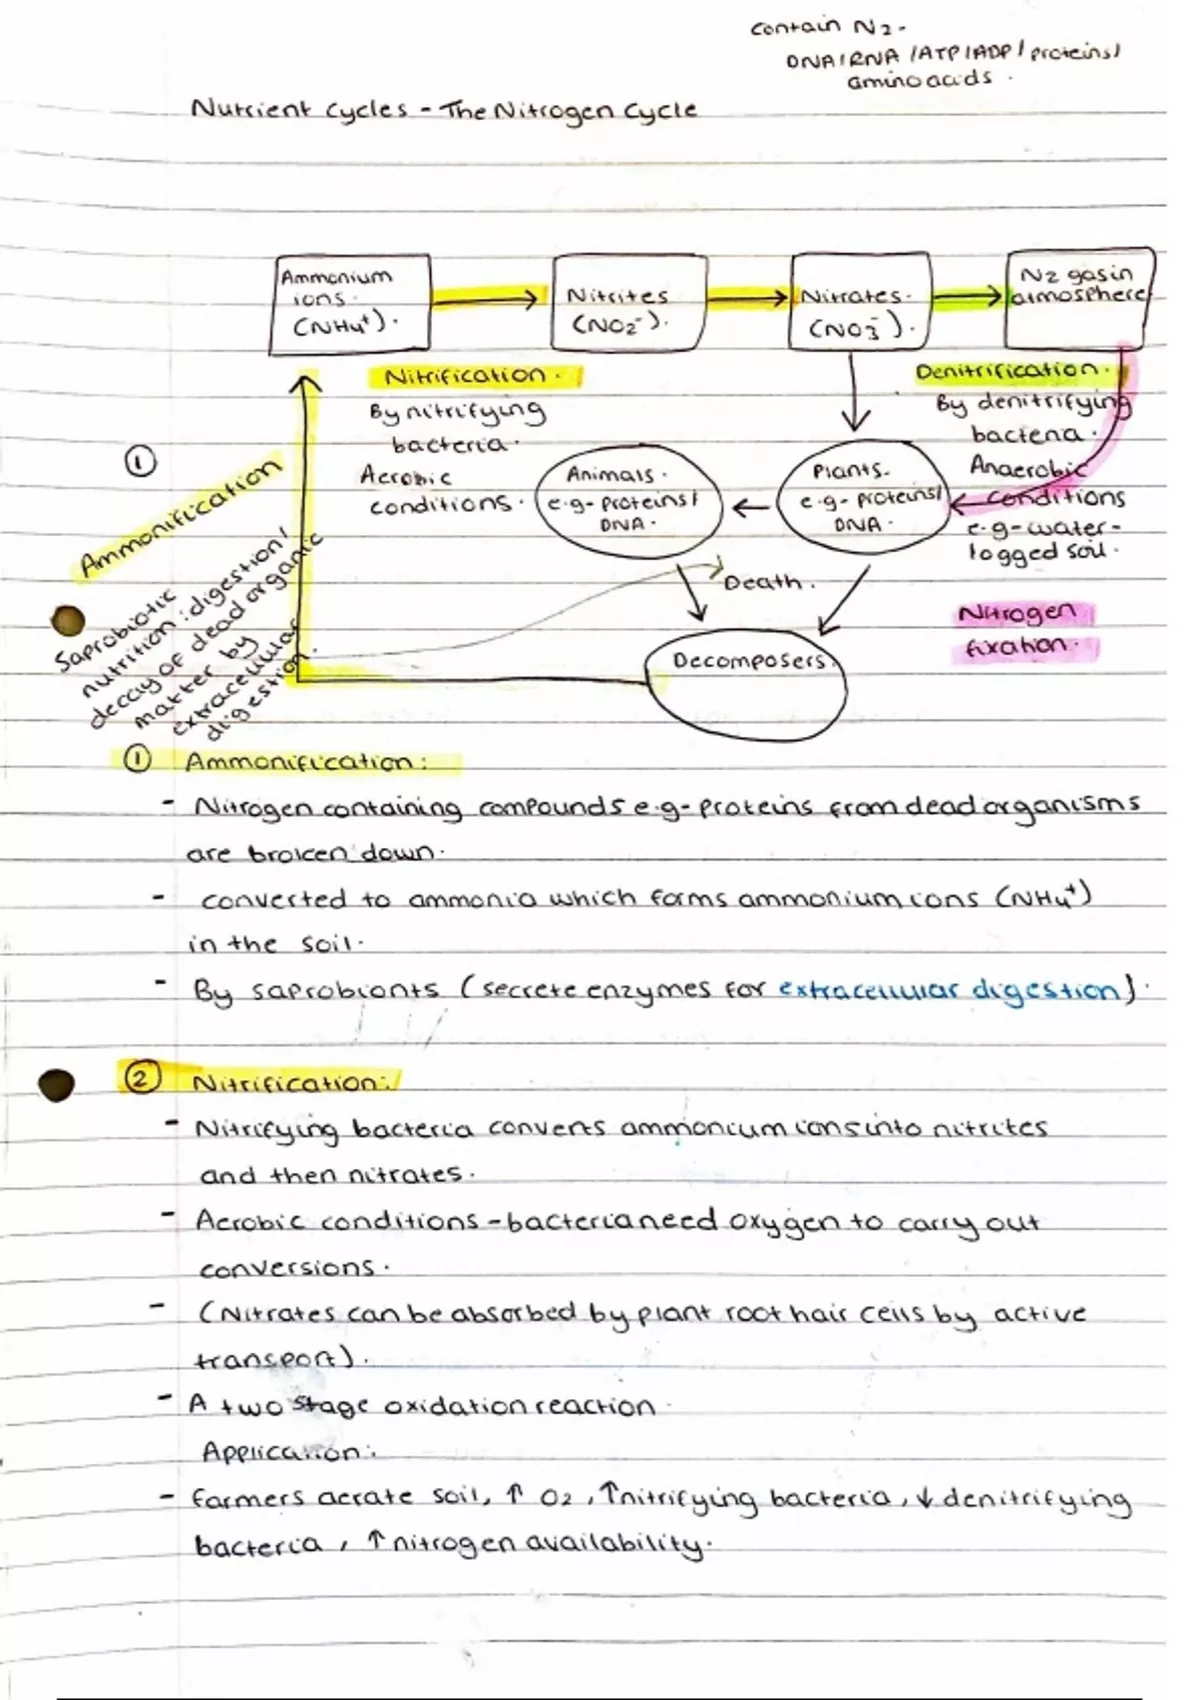 contain N2-
DNA/RNA/ATP/ADP/proteins/
amino acids.
Nutrient cycles - The Nitrogen Cycle
Ammonium
ions.
(NH4+).
Nitrites
(NO2-).
Nitrates.
(NO3-).
N2 gas in
atmosphere
Nitrification.
By nitrifying
bacteria.
Aerobic
conditions.
Denitrification.
By denitrifying
bacteria.
Anaerobic
conditions
e.g- water-
logged soil.
①
Ammonification
Saprobiotic
nutrition: digestion/
decay of dead organic
matter by
extracellular
digestion.
Animals.
e.g- proteins/
DNA.
Plants.
e.g- proteins/
DNA.
Death.
Nitrogen
fixation.
Decomposers.
① Ammonification:
- Nitrogen containing compounds e.g- proteins from dead organisms
are broken down.
- converted to ammonia which forms ammonium ions (NH4+)
in the soil.
- By saprobionts (secrete enzymes for extracellular digestion).
② Nitrification:
- Nitrifying bacteria converts ammonium ions into nitrites
and then nitrates.
- Aerobic conditions - bacteria need oxygen to carry out
conversions.
- (Nitrates can be absorbed by plant root hair cells by active
transport).
- A two stage oxidation reaction.
Application:
- farmers aerate soil, ↑ O2, ↑nitrifying bacteria, ↓ denitrifying
bacteria, ↑ nitrogen availability.